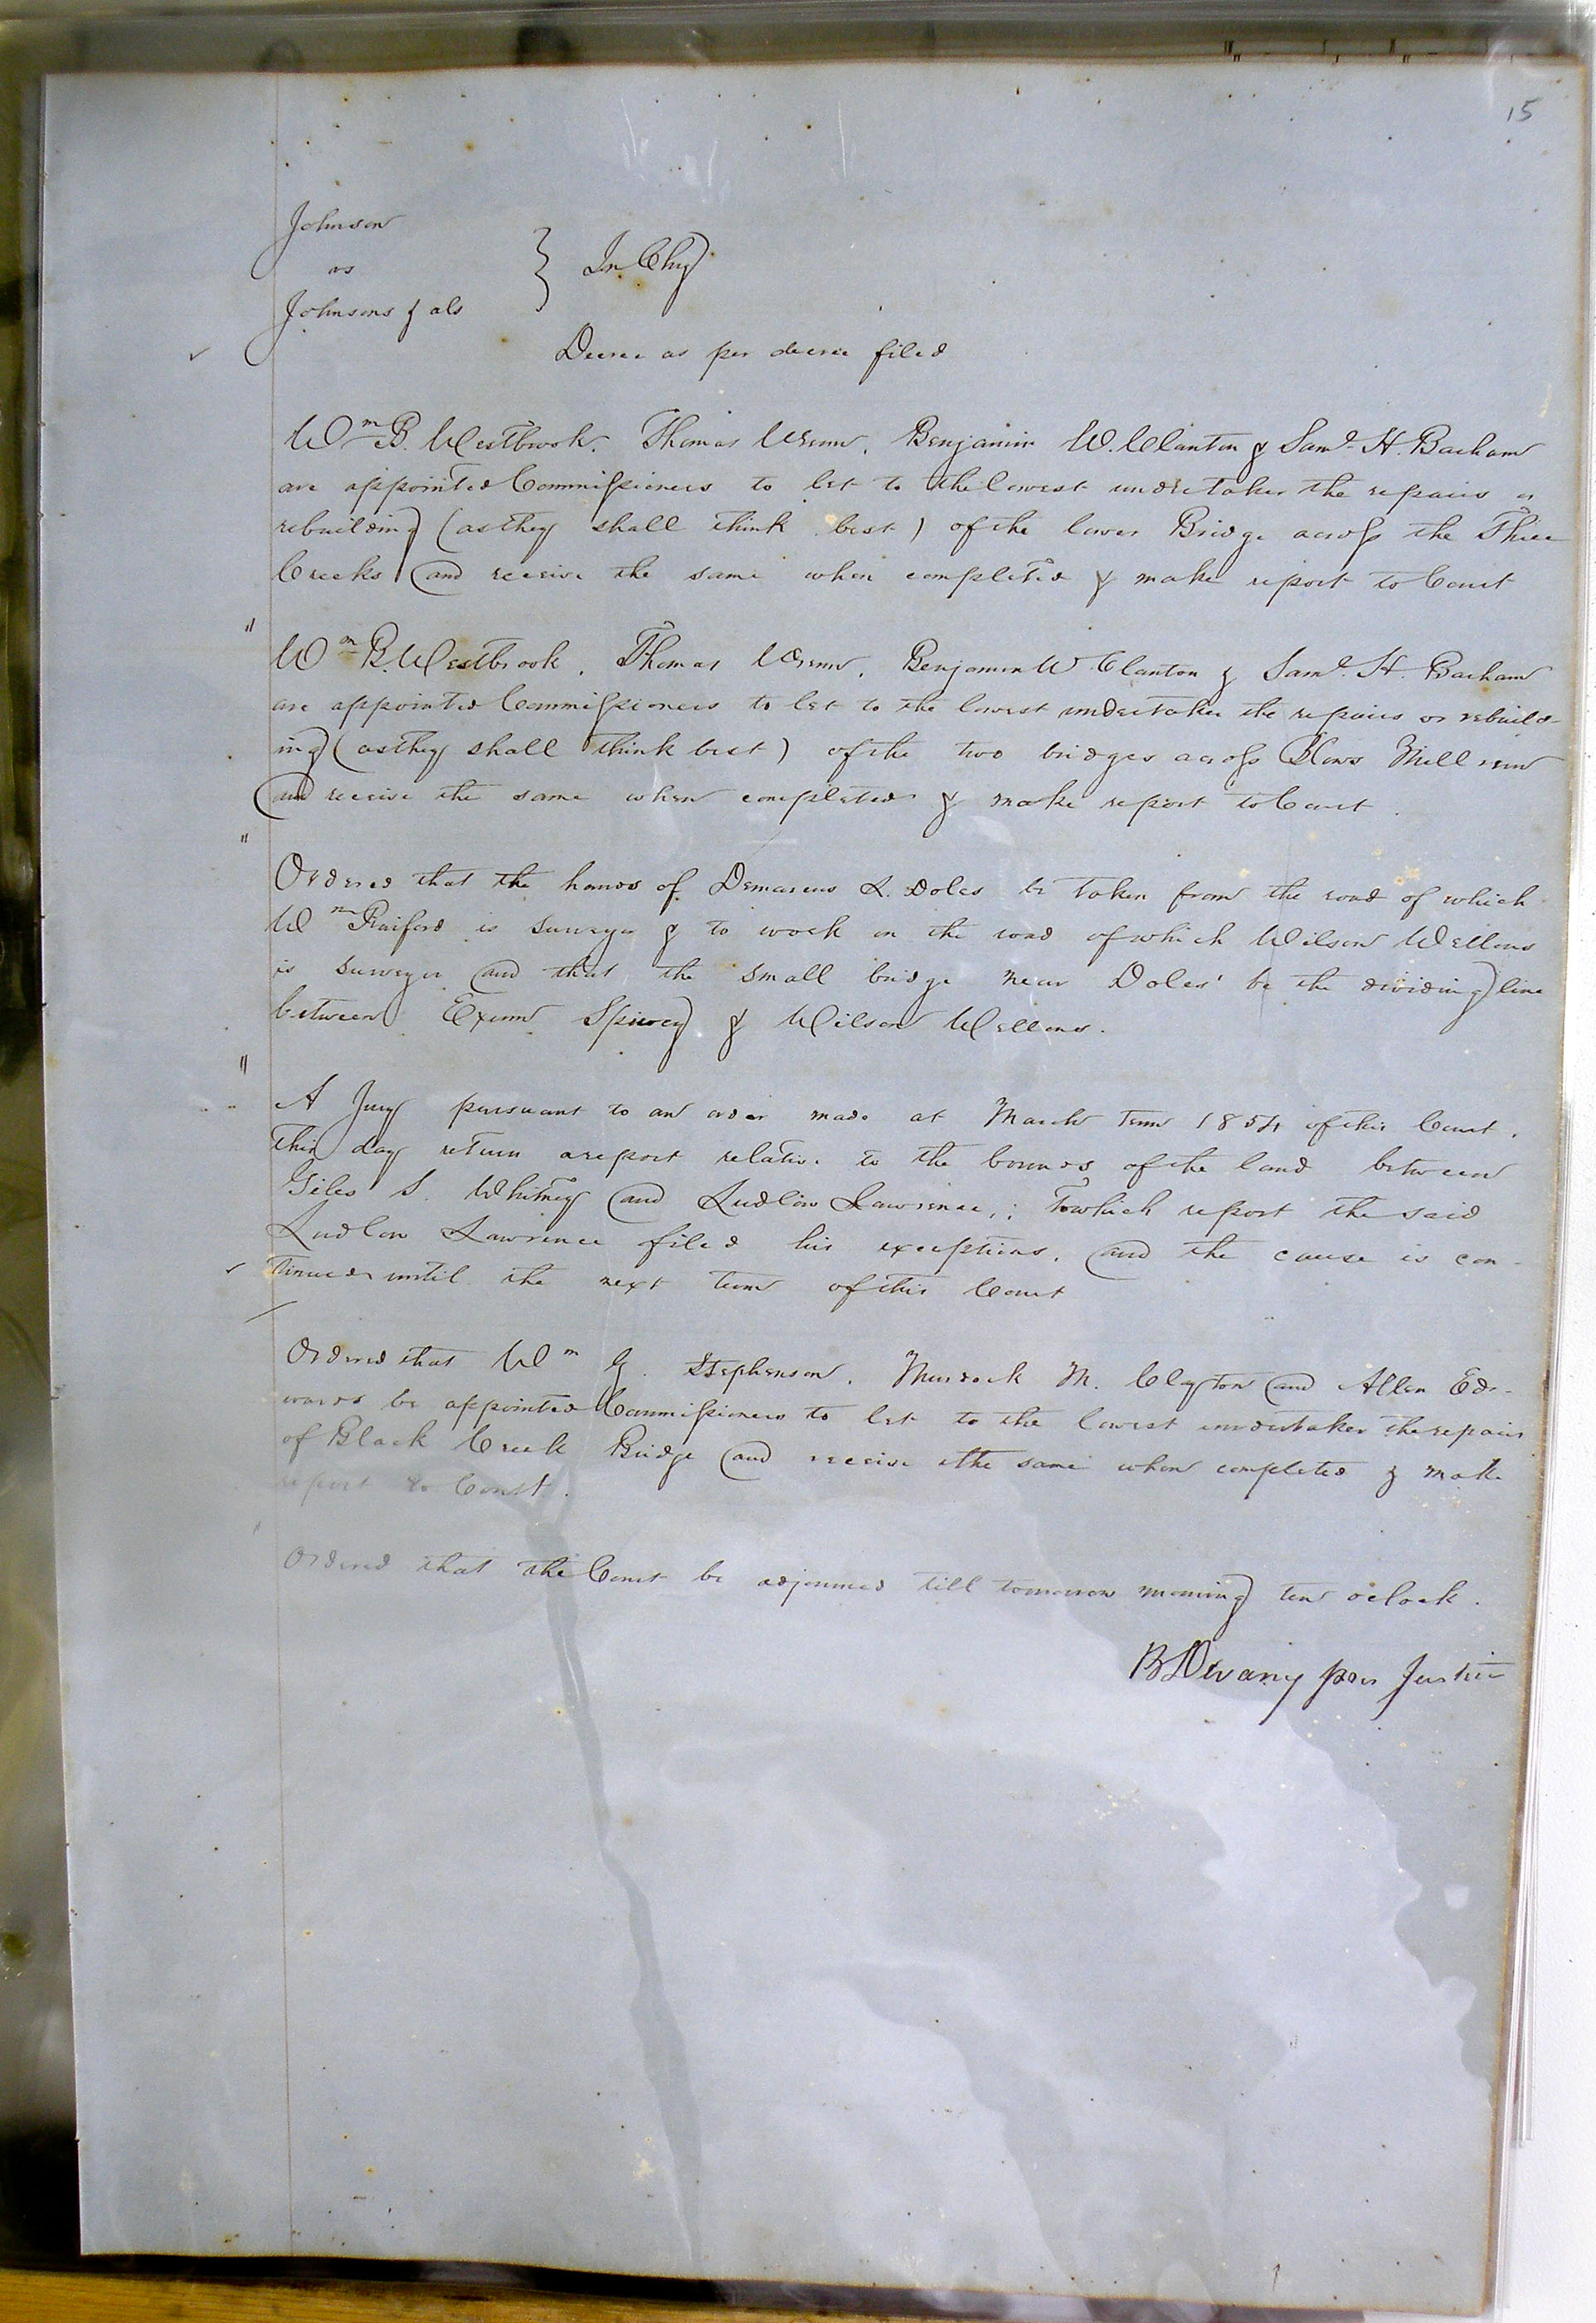 15
Johnson
vs } In Chy
Johnsons & als
Decree as per decree filed
Wm B. Westbrook, Thomas Wrenn, Benjamin W. Clanton & Saml H. Barham
are appointed Commissioners to let to the lowest undertaker the repairs or
rebuilding (as they shall think best) of the lower Bridge across the Three
Creeks and receive the same when completed & make report to Court
" Wm B. Westbrook, Thomas Wrenn, Benjamin W Clanton & Saml. H. Barham
are appointed Commissioners to let to the lowest undertaker the repairs or rebuild-
ing (as they shall think best) of the two bridges across Blows Mill run
and receive the same when completed & make report to Court.
" Ordered that the hands of Demarcus L. Doles be taken from the road of which
Wm Raiford is Surveyor & to work on the road of which Wilson Wellons
is surveyor and that the small bridge near Doles' be the dividing line
between Exum Spivey & Wilson Wellons.
" A Jury pursuant to an order made at March term 1854 of this Court,
this day return a report relative to the bounds of the land between
Giles S. Whitney and Ludlow Lawrence, ; to which report the said
Ludlow Lawrence filed his exceptions, and the cause is con-
tinued until the next term of this Court
Ordered that Wm G. Stephenson, Murdock M. Clayton and Allen Ed-
wards be appointed Commissioners to let to the lowest undertaker the repairs
of Black Creek Bridge and receive the same when completed & make
report to Court.
" Ordered that the Court be adjourned till tomorrow morning ten oclock.
Justice